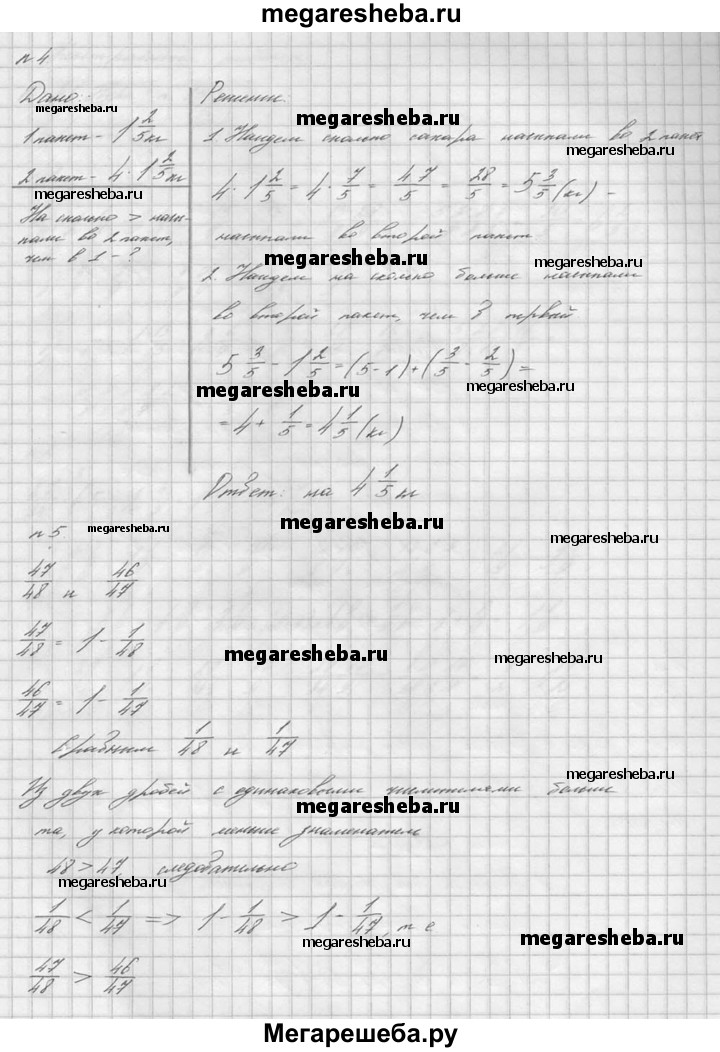 megaresheba.ru
№ 4
Дано:
megaresheba.ru
1 пакет - 1 2/5 кг
2 пакет - 4 · 1 2/5 кг
megaresheba.ru
На сколько > насы-
пали во 2 пакет,
чем в 1 - ?
Решение:
megaresheba.ru
1. Найдем сколько сахара насыпали во 2 пакет
megaresheba.ru
4 · 1 2/5 = 4 · 7/5 = 4·7/5 = 28/5 = 5 3/5 (кг) -
насыпали во второй пакет
megaresheba.ru
megaresheba.ru
2. Найдем на сколько больше насыпали
во второй пакет, чем в первый
5 3/5 - 1 2/5 = (5-1) + (3/5 - 2/5) =
megaresheba.ru
megaresheba.ru
= 4 + 1/5 = 4 1/5 (кг)
Ответ: на 4 1/5 кг
megaresheba.ru
№ 5
megaresheba.ru
megaresheba.ru
47/48 и 46/47
47/48 = 1 - 1/48
megaresheba.ru
megaresheba.ru
46/47 = 1 - 1/47
Сравним 1/48 и 1/47
megaresheba.ru
Из двух дробей с одинаковыми числителями больше
megaresheba.ru
та, у которой меньше знаменатель
48 > 47, следовательно
megaresheba.ru
1/48 < 1/47 => 1 - 1/48 > 1 - 1/47, т е
megaresheba.ru
megaresheba.ru
47/48 > 46/47
Мегарешеба.ру